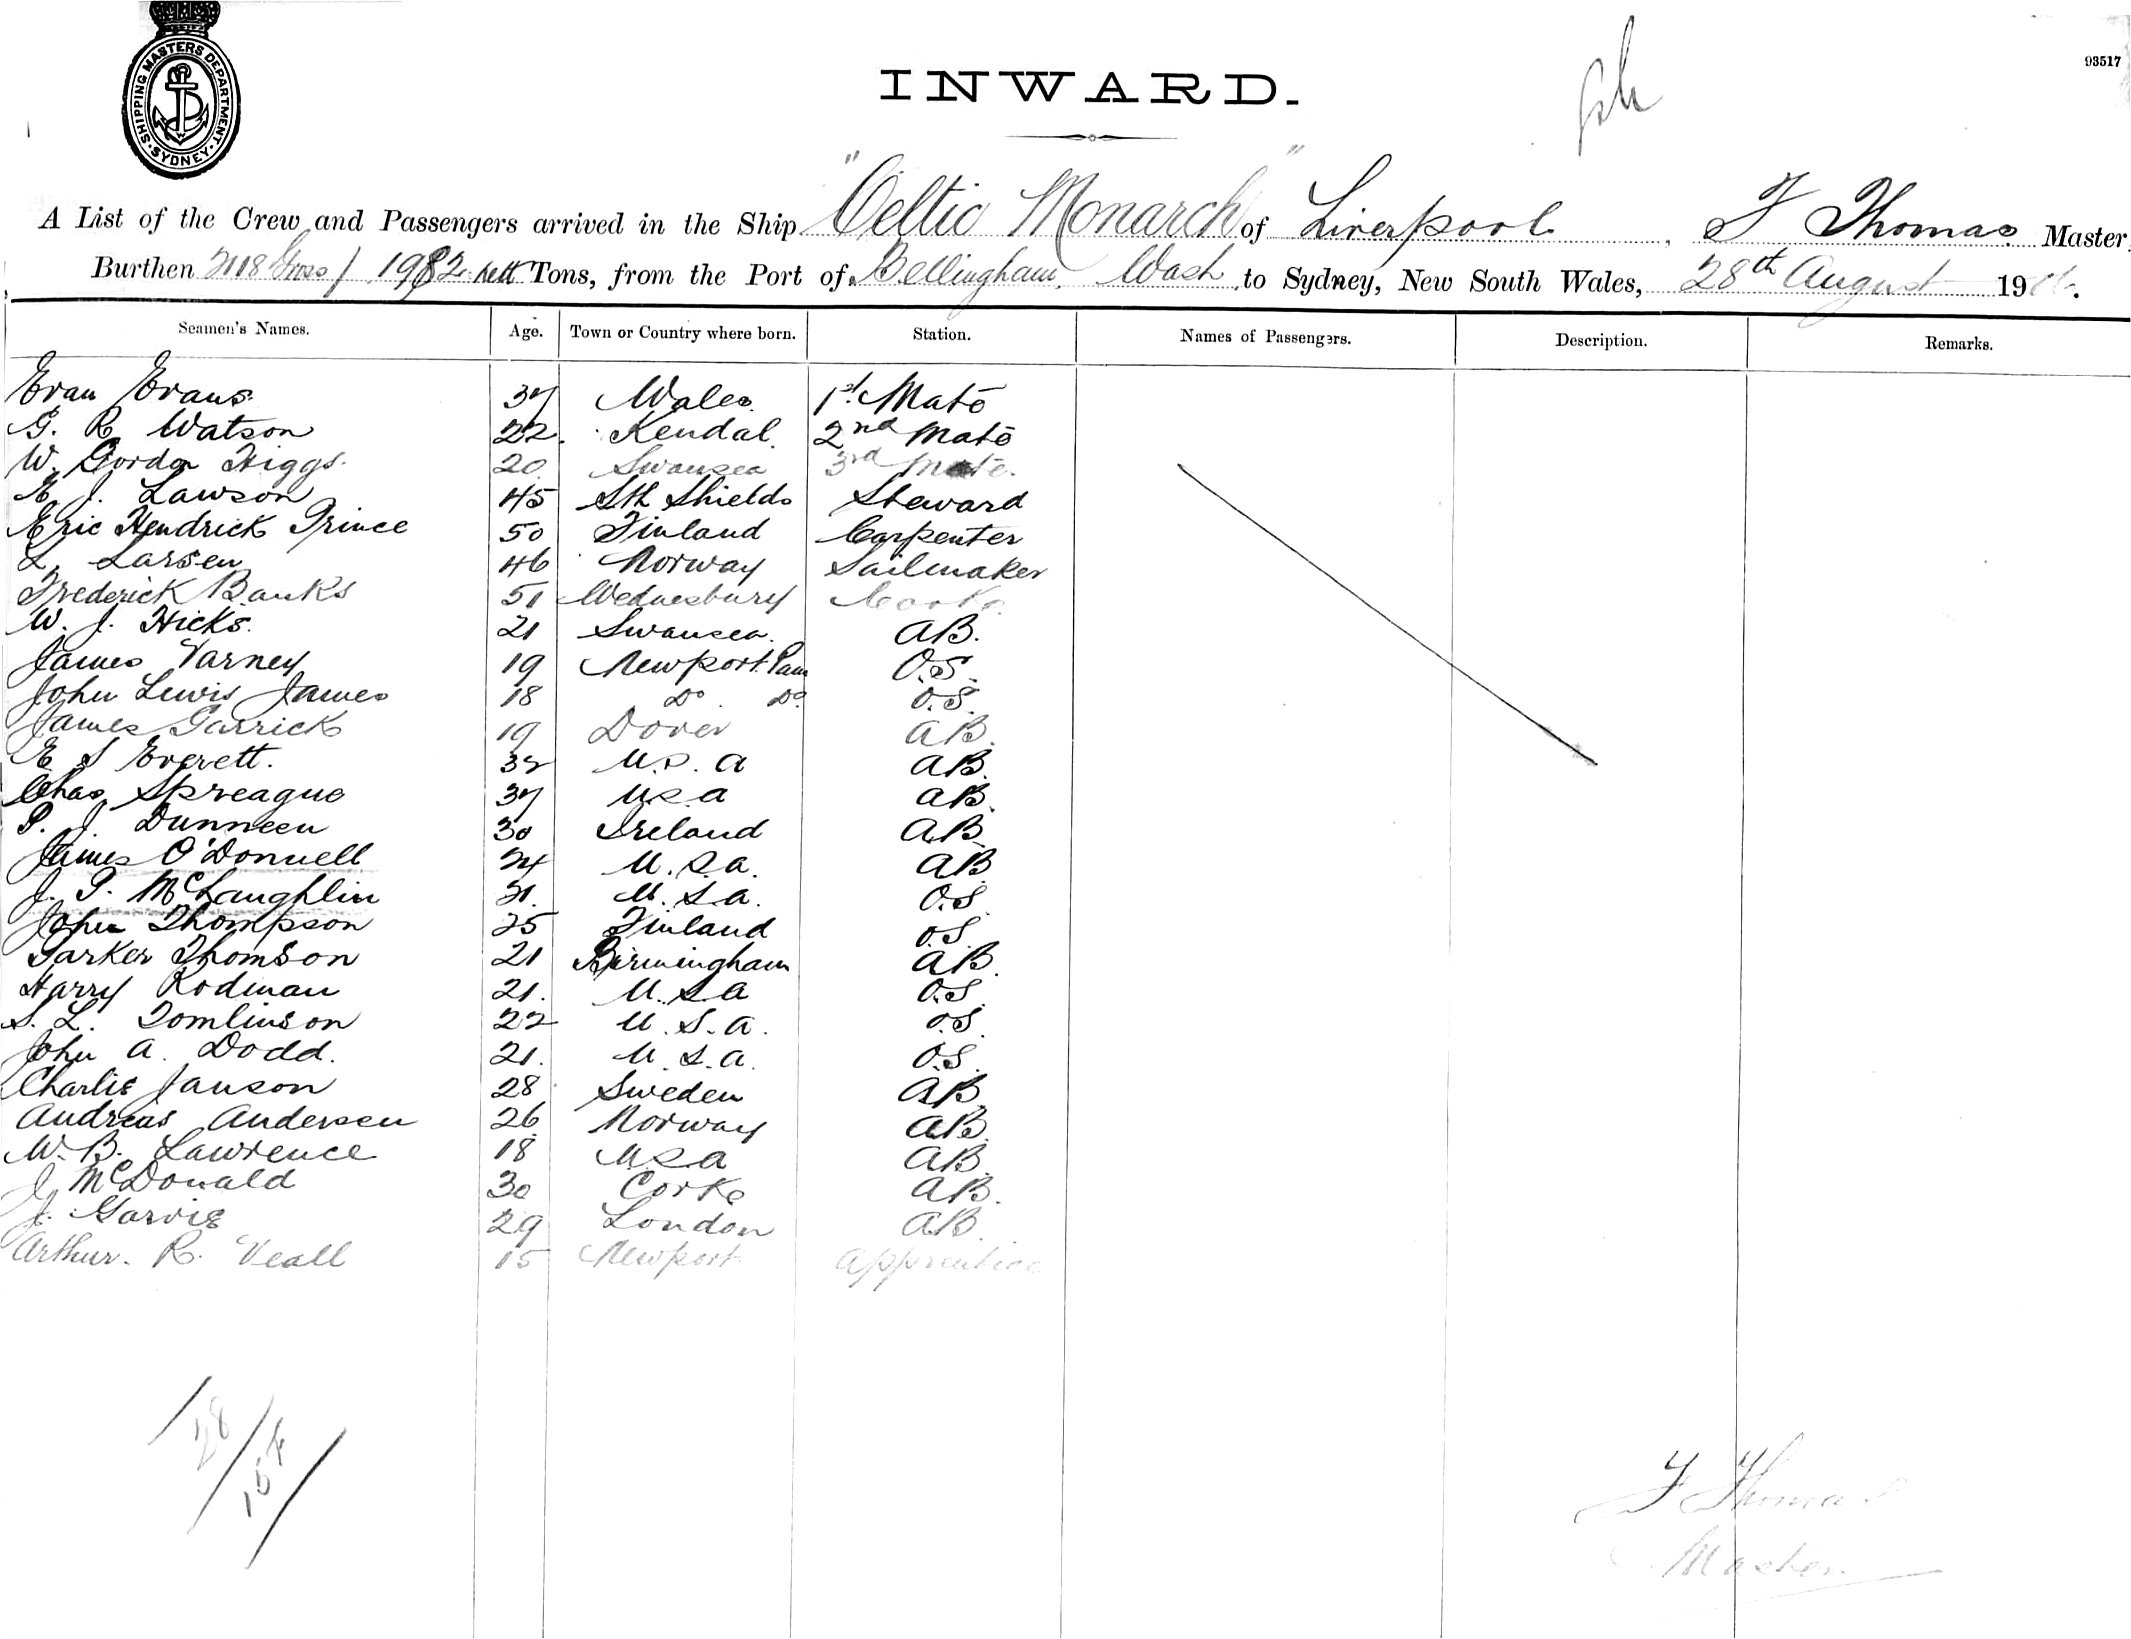 SHIPPING MASTERS DEPARTMENT. SYDNEY.
93517
INWARD.
A List of the Crew and Passengers arrived in the Ship "Celtic Monarch" of Liverpool F Thomas Master,
Burthen 2118 Gross / 1982 nett Tons, from the Port of Bellingham. Wash to Sydney, New South Wales, 28th August 19
Seamen's Names. Age. Town or Country where born. Station. Names of Passengers. Description. Remarks.
Evan Evans. 37 Wales. 1st Mate
G. R Watson 22. Kendal. 2nd Mate
W. Gordon Higgs. 20 Swansea 3rd Mate.
E. J. Lawson 45 Sth Shields Steward
Eric Hendrick Prince 50 Finland Carpenter
L. Larsen 46 Norway Sailmaker
Frederick Banks 51 Wednesbury Cooke
W. J. Hicks. 21 Swansea. AB.
James Varney 19 Newport. O.S.
John Lewis James 18 Do Do. O.S.
James Garrick 19 Dover AB.
E S Everett. 32 U.S.A AB.
Chas Spreague 37 USA AB.
P. J. Dunneen 30 Ireland AB
James O'Donnell 24 U.S.A. AB
J. P. McLaughlin 21. U.S.A. O.S
John Thompson 25 Finland O.S.
Parker Thomson 21 Birmingham AB.
Harry Rodman 21. U.S.A O.S.
S. L. Tomlinson 22 U.S.A. O.S.
John A. Dodd. 21. U.S.A. O.S.
Charlie Janson 28 Sweden AB.
Andreas Andersen 26 Norway AB.
W. B. Lawrence 18 USA AB.
J McDonald 30 Corke AB.
J. Garvie 29 London AB.
Arthur. R. Veall 15 Newport Apprentice
28
154
F Thomas
Master